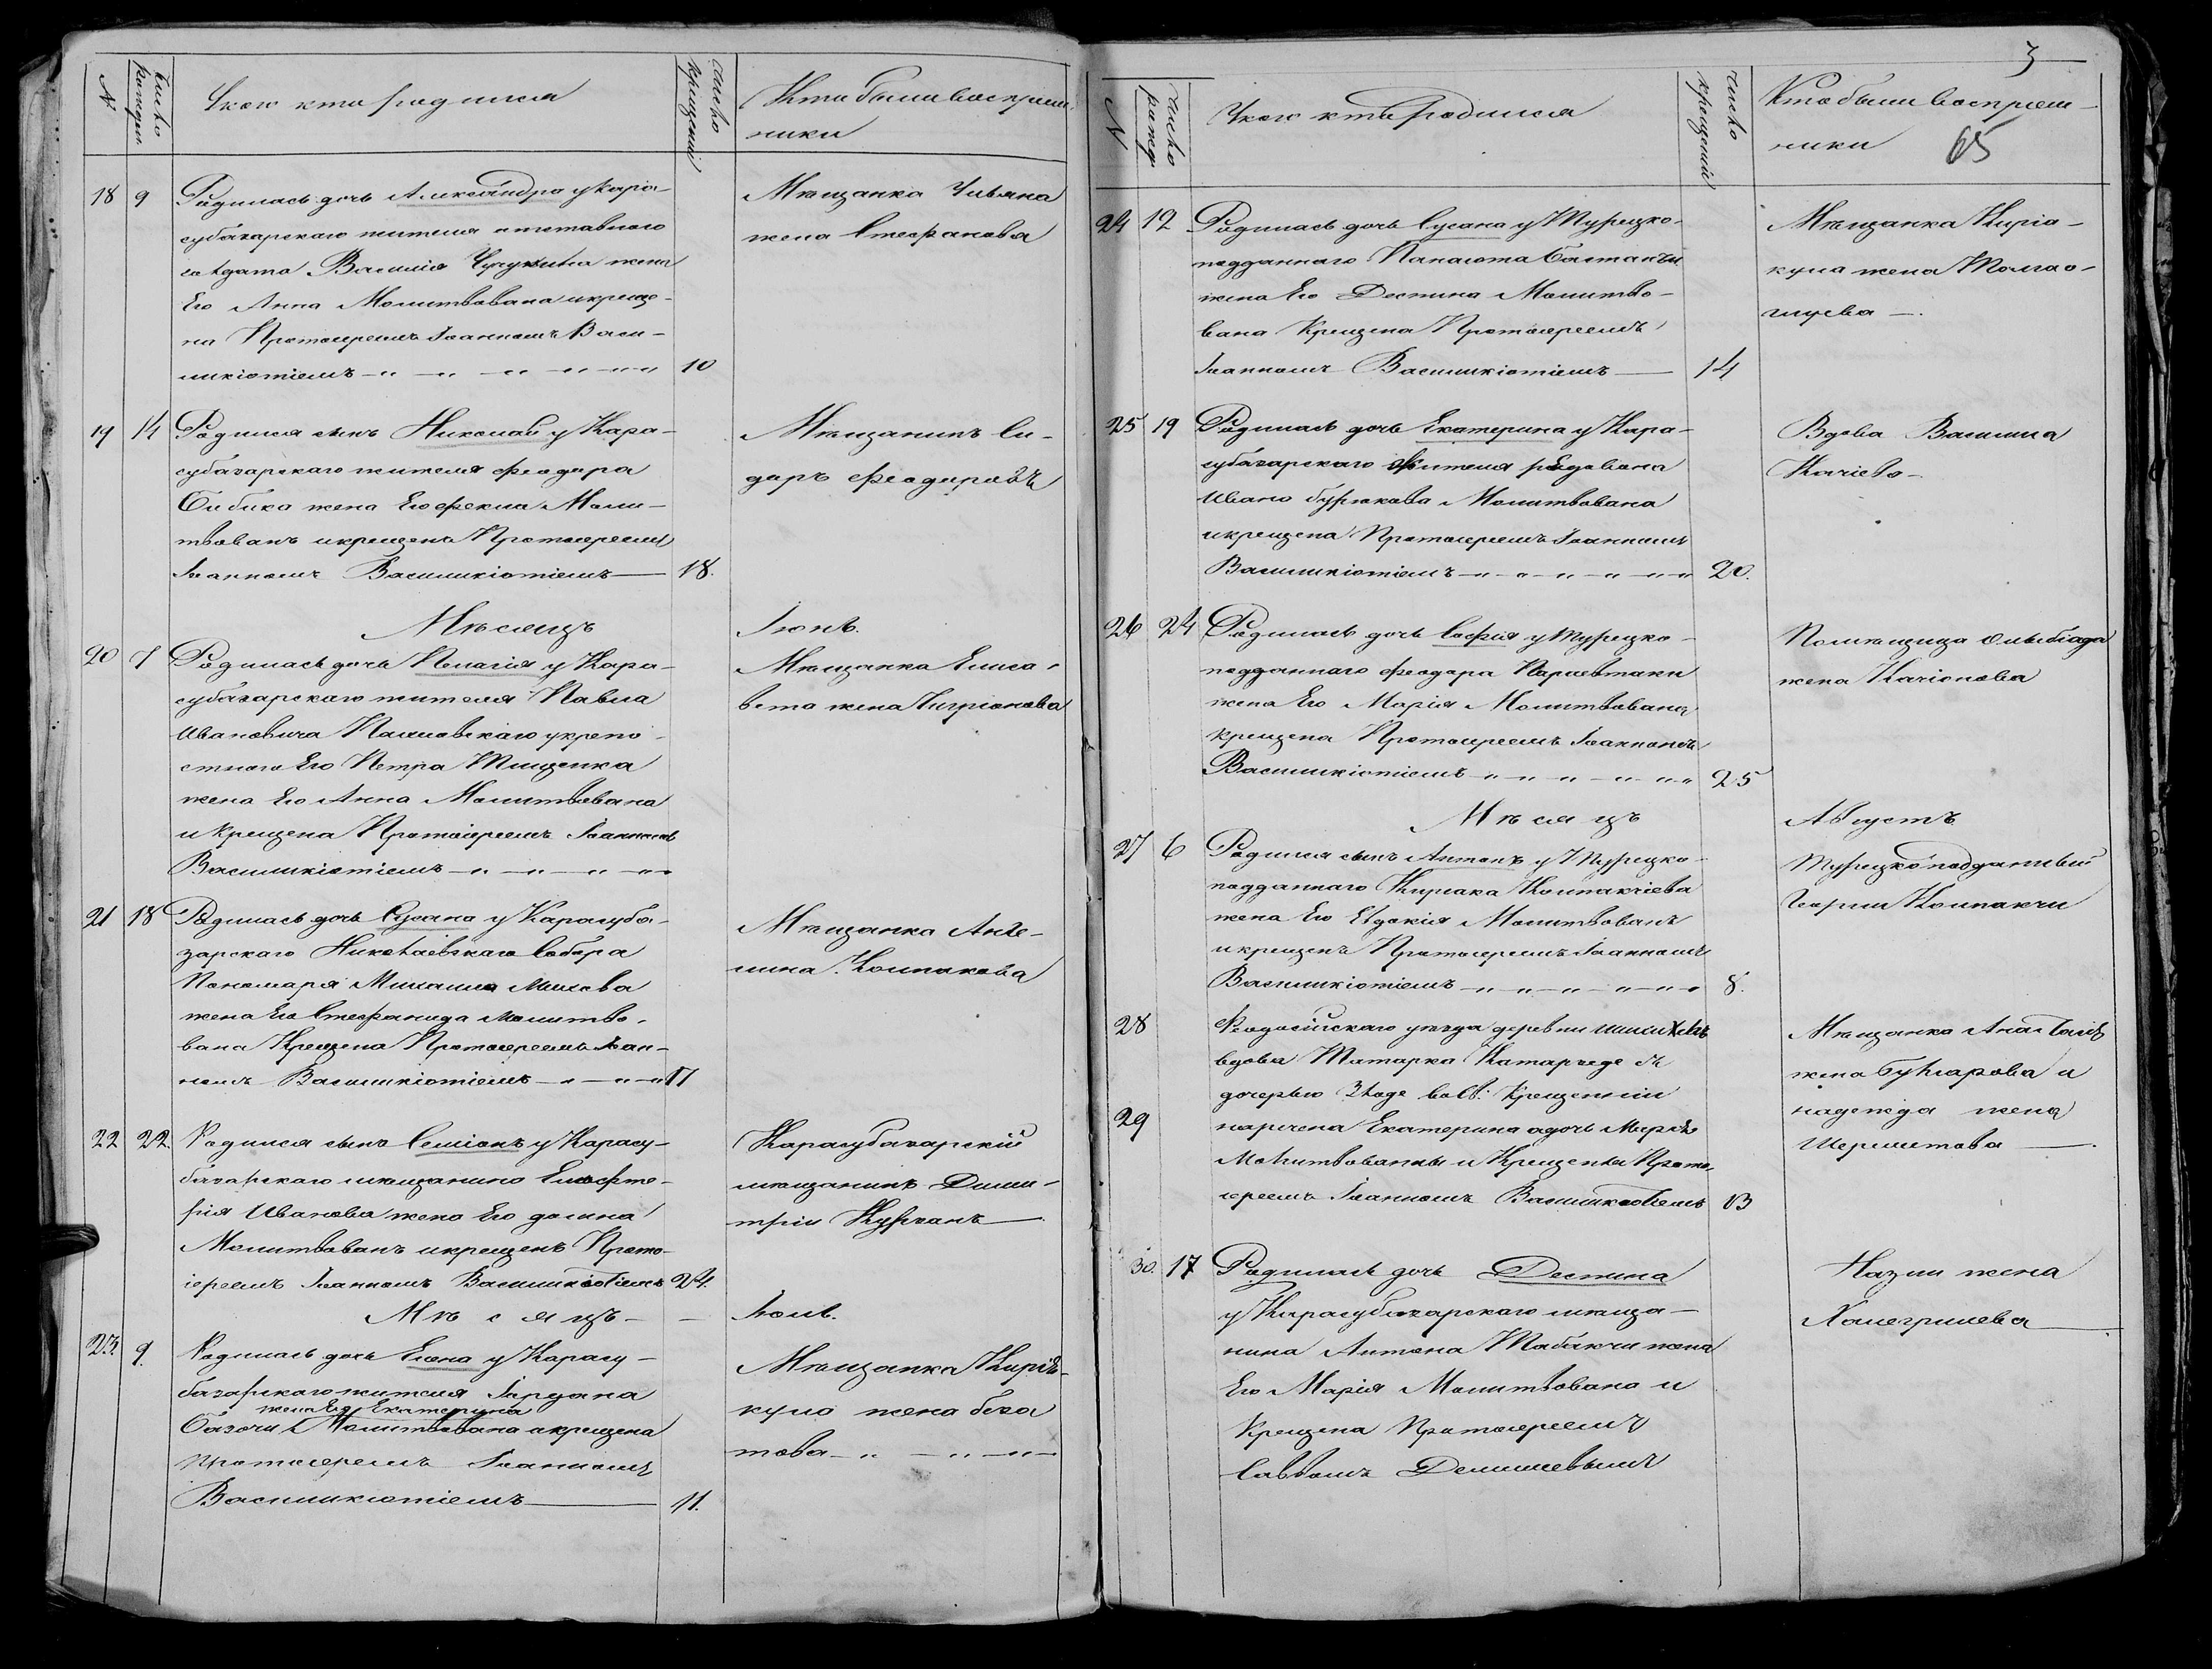 №
Число рожден.
У кого кто родился
Число крещенія
Кто были воспріем-
ники
18 9 Родилась дочь Александра у Кара-
субазарскаго жителя отставного
солдата Василія жена
Его Анна Молитвована и креще-
на Протоіереемъ Іоанномъ Васи-
ликіотіемъ 10
Мѣщанка Ульяна
жена Стефанова
19 14 Родился сынъ Николай у Кара-
субазарскаго жителя Феодора
Бибико жена Его Фекла Моли-
твованъ и крещенъ Протоіереемъ
Іоанномъ Василикіотіемъ 18.
Мѣщанинъ Си-
доръ Феодоровъ
Мѣсяцъ Іюнь.
20 7 Родилась дочь Пелагія у Кара-
субазарскаго жителя Павла
Ивановича у крепо-
стного Его Петра Тищенка
жена Его Анна Молитвована
и Крещена Протоіереемъ Іоанномъ
Василикіотіемъ
Мѣщанка Елиса-
вета жена
21 18 Родилась дочь Сусана у Карасуба-
зарскаго Николаевскаго Собора
Пономаря Михаила Михева
жена Его Стефанида Молитво-
вана Крещена Протоіереемъ Іоан-
номъ Василикіотіемъ 17
Мѣщанка Анге-
лина Колпакова
22 22. Родился сынъ Семіонъ у Карасу-
базарскаго мѣщанина Елефте-
рія Иванова жена Его домна
Молитвованъ и крещенъ Прото-
іереемъ Іоанномъ Василикіотіемъ 24.
Карасубазарскій
мѣщанинъ Дими-
трій Курганъ
Мѣсяцъ Іюль.
23. 9. Родилась дочь Елена у Карасу-
базарскаго жителя Іордана
жена Его Екатерина
Молитвована и крещена
Протоіереемъ Іоанномъ
Василикіотіемъ 11.
Мѣщанка Киріа-
куло жена беза
това
3
65
№
Число рожд.
У кого кто Родился
Число крещеній
Кто были воспріем-
ники
24 12 Родилась дочь Сусана у Турецко-
подданнаго Панаіота Бостанжи
жена Его Деспина Молитво-
вана Крещена Протоіереемъ
Іоанномъ Василикіотіемъ 14
Мѣщанка Киріа-
кула жена Толмао-
глуева
25 19 Родилась дочь Екатерина у Кара-
субазарскаго жителя рядована
Ивана бурлакова Молитвована
и крещена Протоіереемъ Іоанномъ
Василикіотіемъ 20.
Вдова Василиса
Качіева
26 24 Родилась дочь Софія у Турецко-
подданнаго Феодора Параевтаки
жена Его Марія Молитвована
крещена Протоіереемъ Іоанномъ
Василикіотіемъ 25
Помѣщица
жена Качіонова
Мѣсяцъ Августъ
27 6 Родился сынъ Антонъ у Турецко-
подданнаго Киріака Колпакчіева
жена Его Евдокія Молитвованъ
и крещенъ Протоіереемъ Іоанномъ
Василикіотіемъ 8.
Турецкоподданный
Георги Колпакчи
28 Феодосійскаго уѣзда деревни
вдова Татарка съ
дочерью во Св: Крещеніи
29 наречена Екатерина а дочь Марія
Молитвованны и Крещены Прото-
іереемъ Іоанномъ Василикіотіемъ 13
Мѣщанка Анастасія
жена Булгарова и
надежда жена
Шереметова
30. 17 Родилась дочь Деспина
у Карасубазарскаго мѣща-
нина Антона Табакчи жена
Его Марія Молитвована и
Крещена Протоіереемъ
Саввомъ Демишевымъ
Назли жена